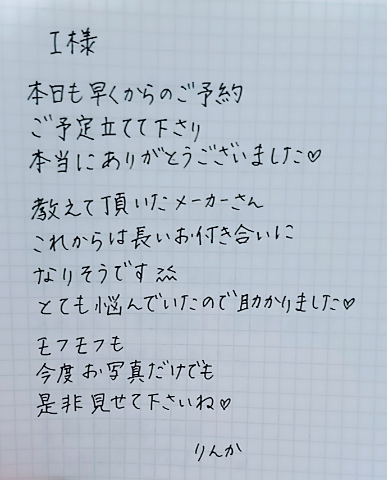 I様
本日も早くからのご予約
ご予定立てて下さり
本当にありがとうございました♡
教えて頂いたメーカーさん
これからは長いお付き合いに
なりそうです
とても悩んでいたので助かりました♡
モフモフも
今度お写真だけでも
是非見せて下さいね♡
りんか